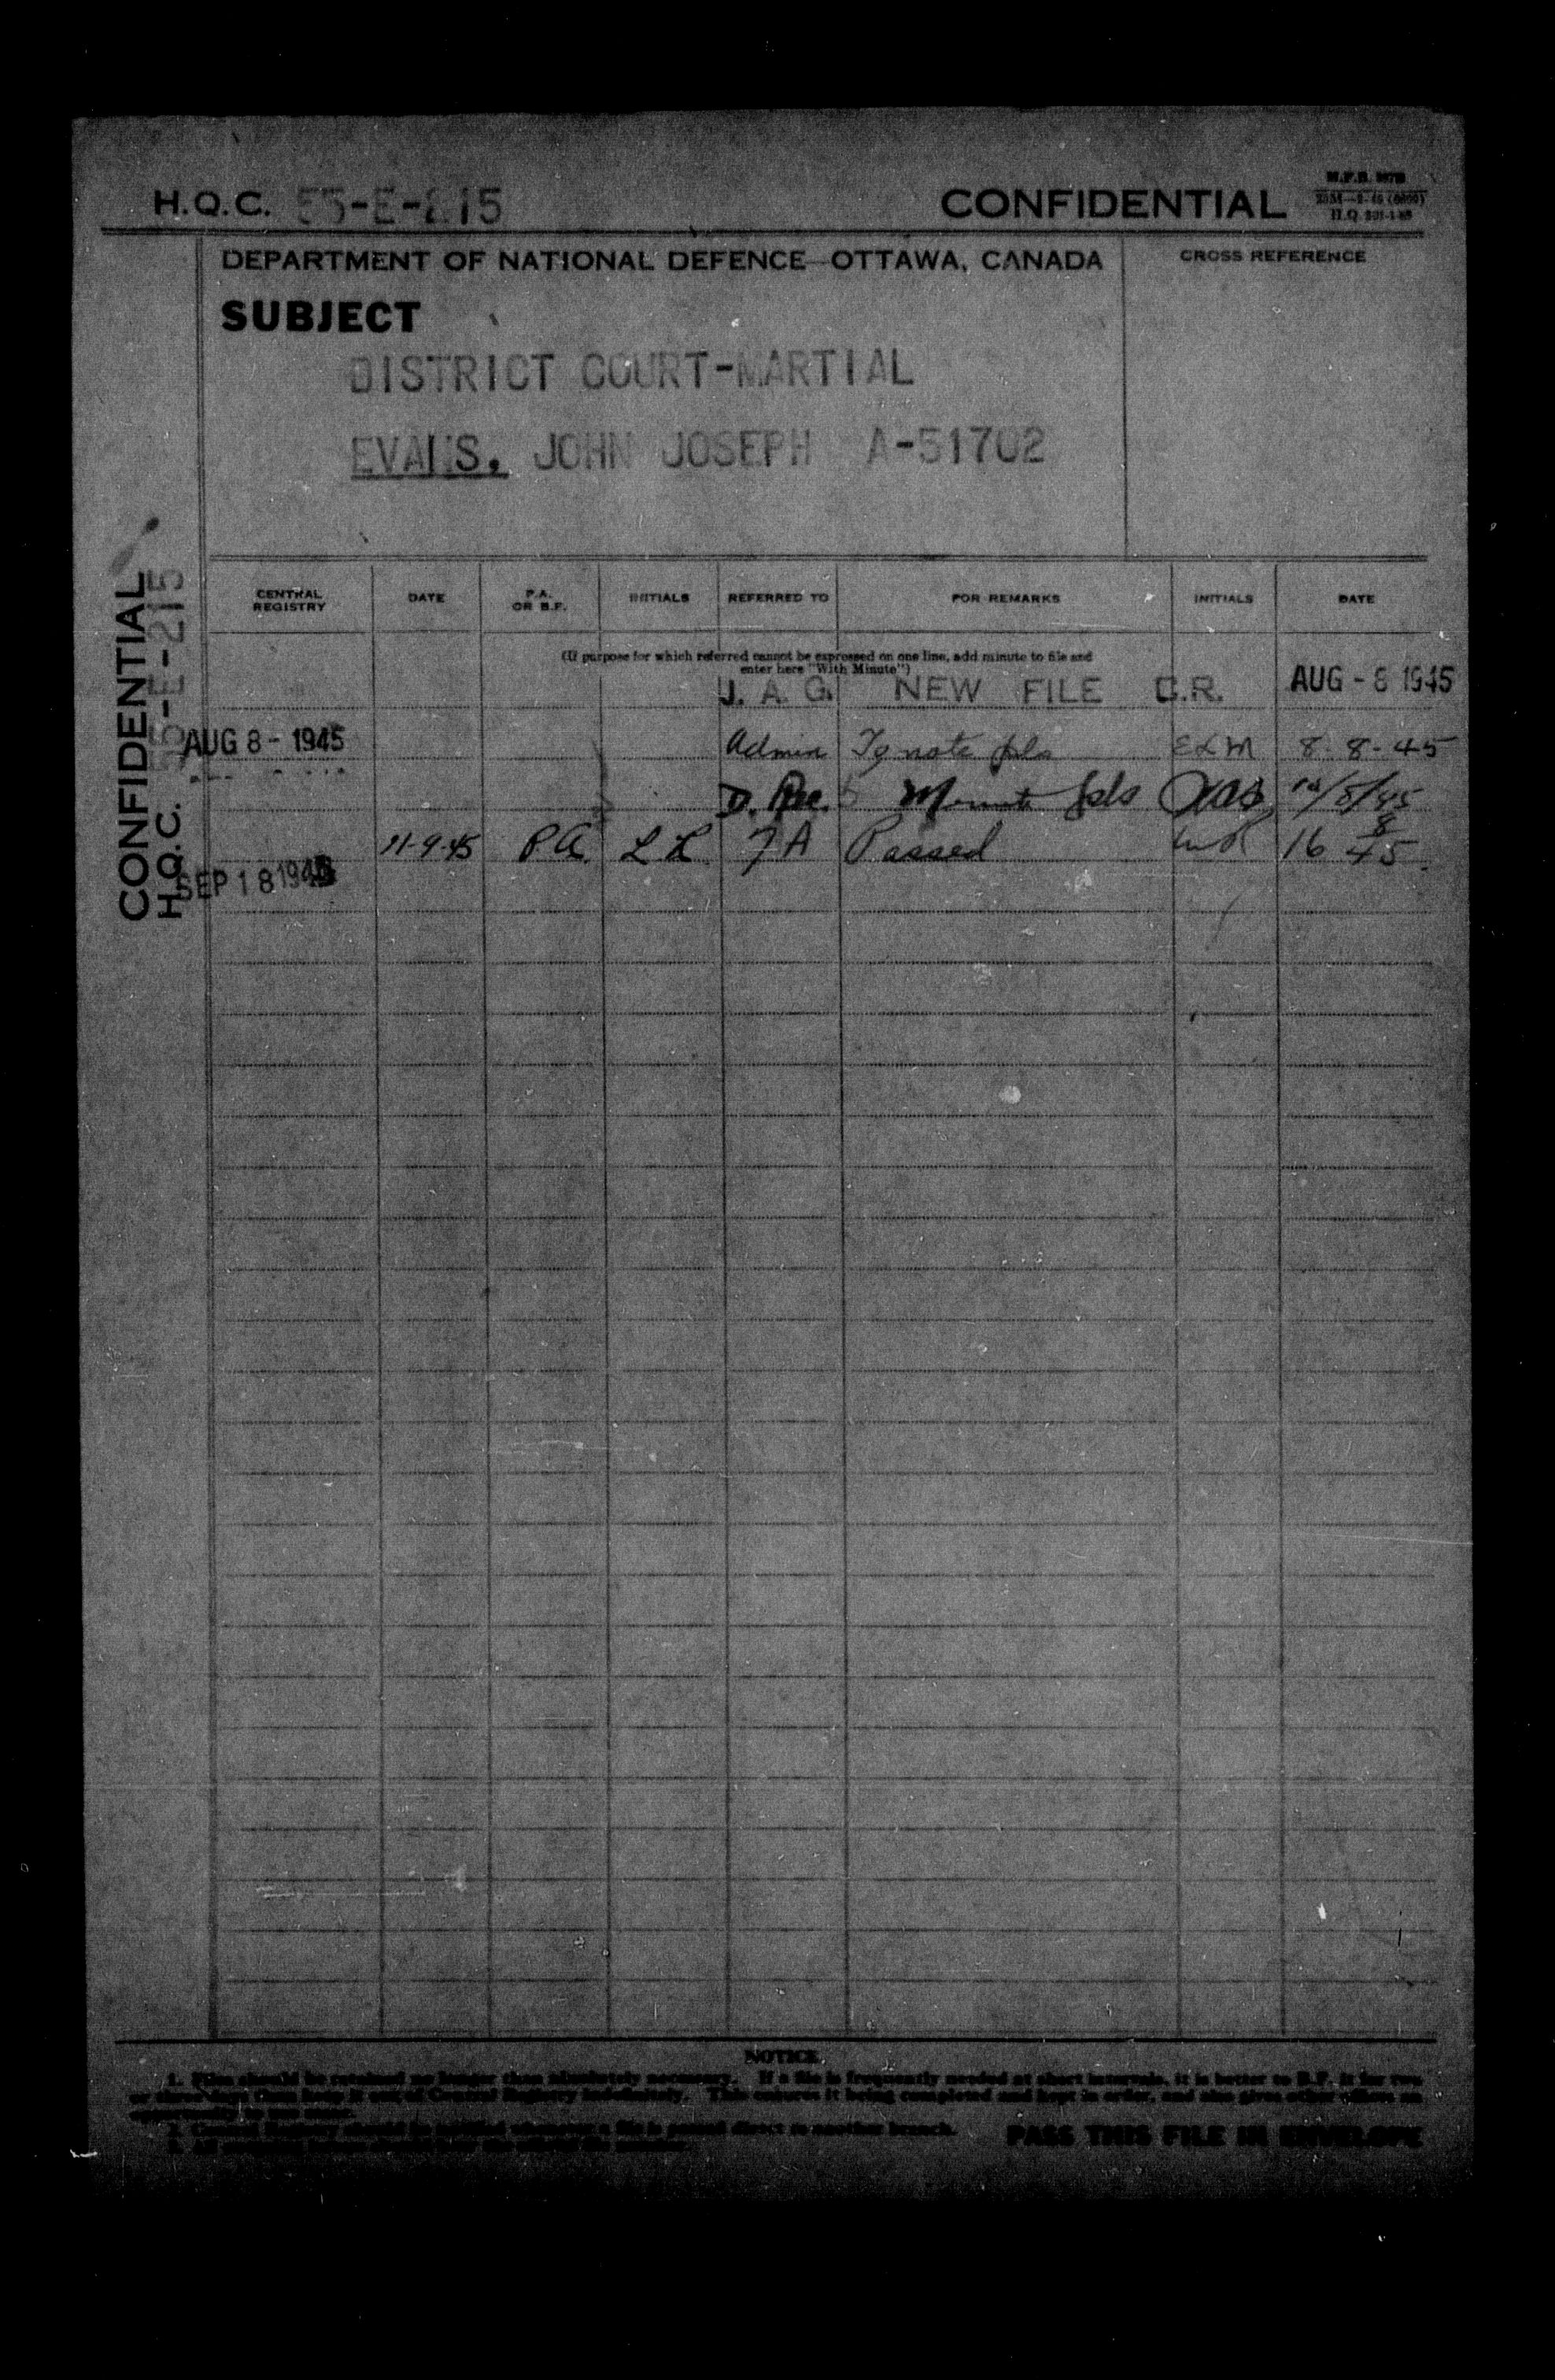 H.Q.C. 55-E-215
CONFIDENTIAL
DEPARTMENT OF NATIONAL DEFENCE OTTAWA, CANADA
CROSS REFERENCE
SUBJECT
DISTRICT COURT-MARTIAL
EVANS, JOHN JOSEPH A-51702
CONFIDENTIAL
H.Q.C. 55-E-215
CENTRAL REGISTRY DATE P.A. OR B.F. INITIALS REFERRED TO FOR REMARKS INITIALS DATE
(If purpose for which referred cannot be expressed on one line, add minute to file and
enter here "With Minute")
J. A. G. NEW FILE C.R. AUG - 8 1945
AUG 8 - 1945 Admin To note pls ELM 8-8-45
D. Minute pls 10/8/45
11-9-45 P.A. L L JA Passed 16 8/45
SEP 18 1945
NOTICE
1. Files should be retained no longer than absolutely necessary. If a file is frequently needed at short intervals, it is better to B.F. it for two
or three days than have it out of Central Registry indefinitely. This ensures it being completed and kept in order, and also gives other offices an
opportunity to
2. Central Registry should be notified whenever a file is passed direct to another branch.
PASS THIS FILE IN ENVELOPE